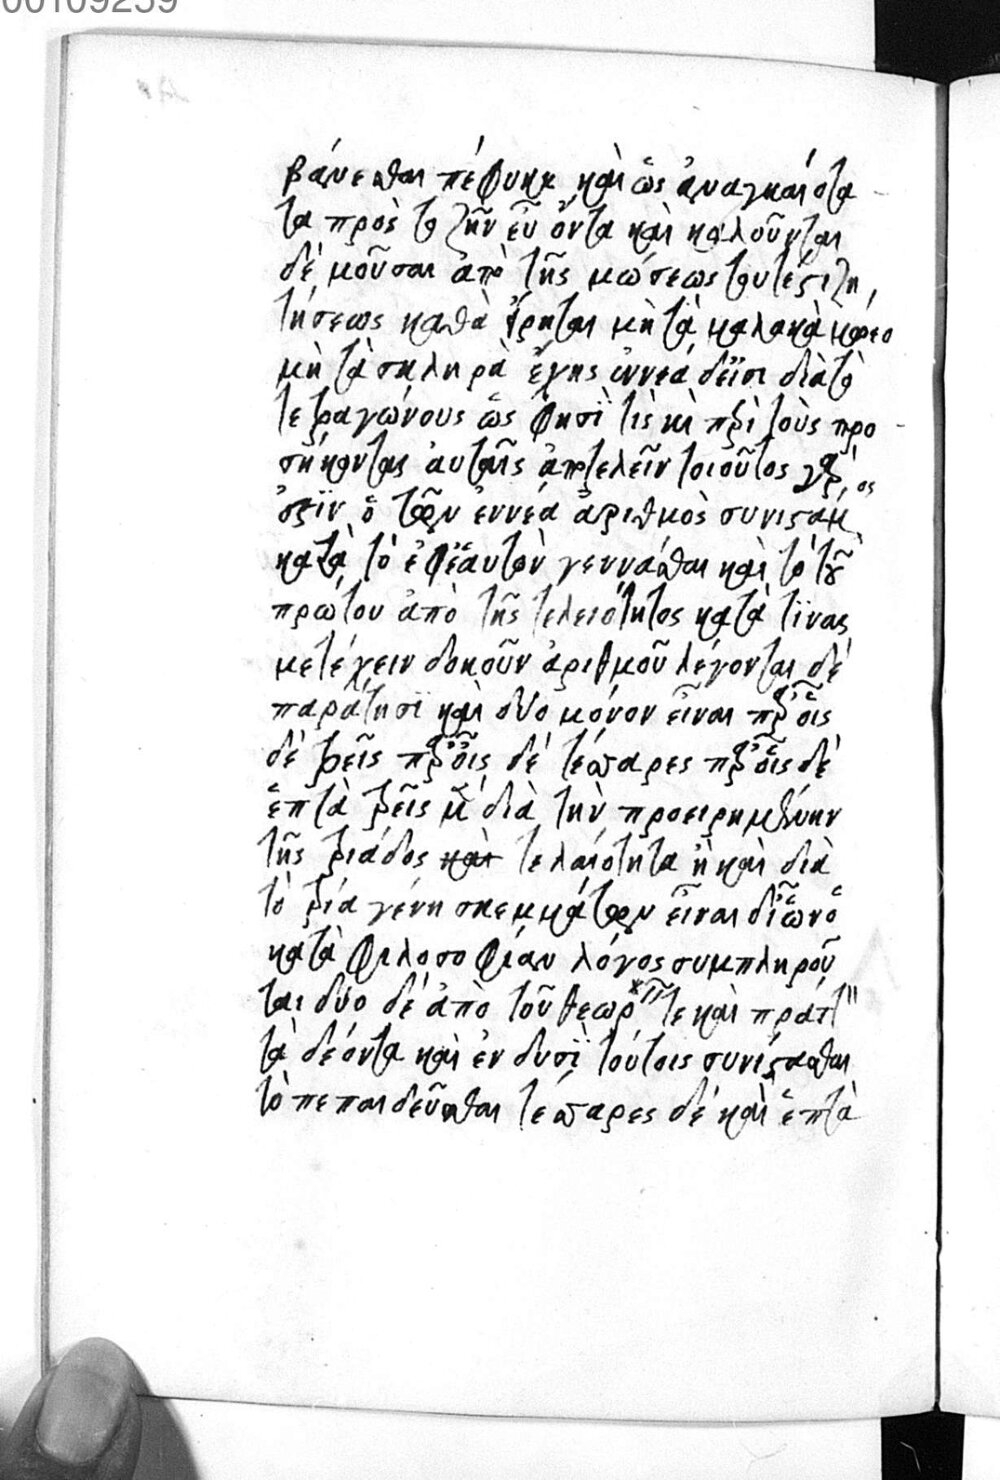 00109259
βάνεσθαι πέφυκε, καὶ ὡς ἀναγκαιότα
τα πρὸς τὸ ζῆν εὖ ὄντα καὶ καλοῦνται
δέ μοῦσαι ἀπὸ τῆς μώσεως τουτέστι ζη,
τήσεως καθὰ εἴρηται μὴ τὰ μαλακὰ μώεο
μὴ τὰ σκληρὰ ἔχης ἐννεά δεἴσι διὰ τὸ
τετραγώνους ὥς φησὶ τὶς καὶ περὶ τοὺς προ
σήκοντας αὐταῖς ἀποτελεῖν τοιοῦτος γάρ,
ἐστὶν ὁ τῶν ἐννέα ἀριθμὸς συνιστάμενος
κατὰ τὸ ἐφ ἑαυτὸν γεννάσθαι καὶ τὸ τοῦ
πρώτου ἀπὸ τῆς τελειότητος κατὰ τίνας
μετέχειν δοκοῦν ἀριθμοῦ λέγονται δέ
παράτισϊ καὶ δύο μόνον εἶναι παρ οἷς
δέ τρεῖς παρ οἷς δέ τέσσαρες παρ οἷς δέ
ἑπτὰ τρεῖς μὲν διὰ τὴν προειρημένην
τῆς τριάδος τελαιότητα ἢ καὶ διὰ
τὸ τρία γένη σκεμμάτων εἶναι δι ὧν ὁ
κατὰ φιλοσοφίαν λόγος συμπληροῦ
ται δύο δέ ἀπὸ τοῦ θεωρεῖν τε καὶ πράττειν
τὰ δέοντα καὶ ἐν δυσὶ τούτοις συνίστασθαι
τὸ πεπαιδεῦσθαι τέσσαρες δέ καὶ ἑπτὰ